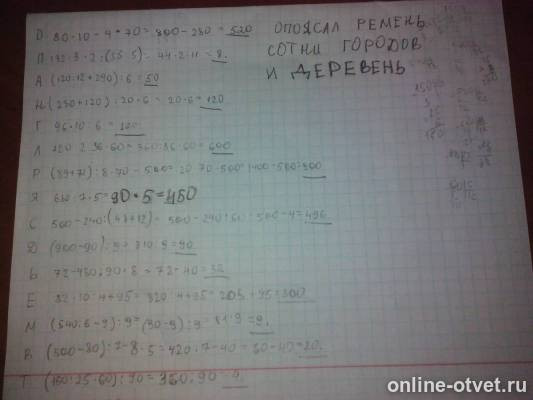 О 80·10-4·70=800-280=520
П 132:3·2:(55:5)=44·2:11=8.
А (120:12+290):6=50
Н (280+120):20·6=20·6=120
Г 96·10:6=
Л 120:2·36·60=360:36·60=600
Р (89+71):8·70-500=20·70-500=1400-500=900
Я 630:7·5=90·5=450
С 500-240:(48+12)=500-240:60=500-4=496
Д (900-90):9=810:9=90
Ь 72-450:90·8=72-40=32
Е 82·10:4+95=820:4+95=205+95=300
М (540:6-9):9=(90-9):9=81:9=9.
В (500-80):7-8·5=420:7-40=60-40=20.
Т (150:25·60):90=360:90=4.
ОПОЯСАЛ РЕМЕНЬ
СОТНИ ГОРОДОВ
И ДЕРЕВЕНЬ
online-otvet.ru